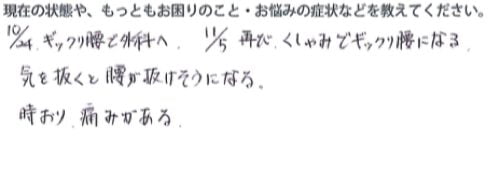 現在の状態や、もっともお困りのこと・お悩みの症状などを教えてください。
10/24 ギックリ腰で外科へ 11/5 再び くしゃみでギックリ腰になる
気を抜くと腰が抜けそうになる。
時おり 痛みがある